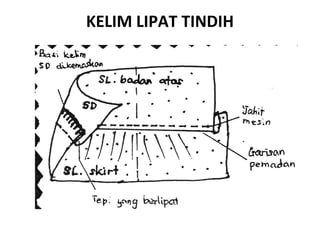 KELIM LIPAT TINDIH
Baki kelim
SD dikemaskan
SL: badan atas
SD
Jahit
mesin
Garisan
pemadan
SL. skirt
Tepi yang berlipat